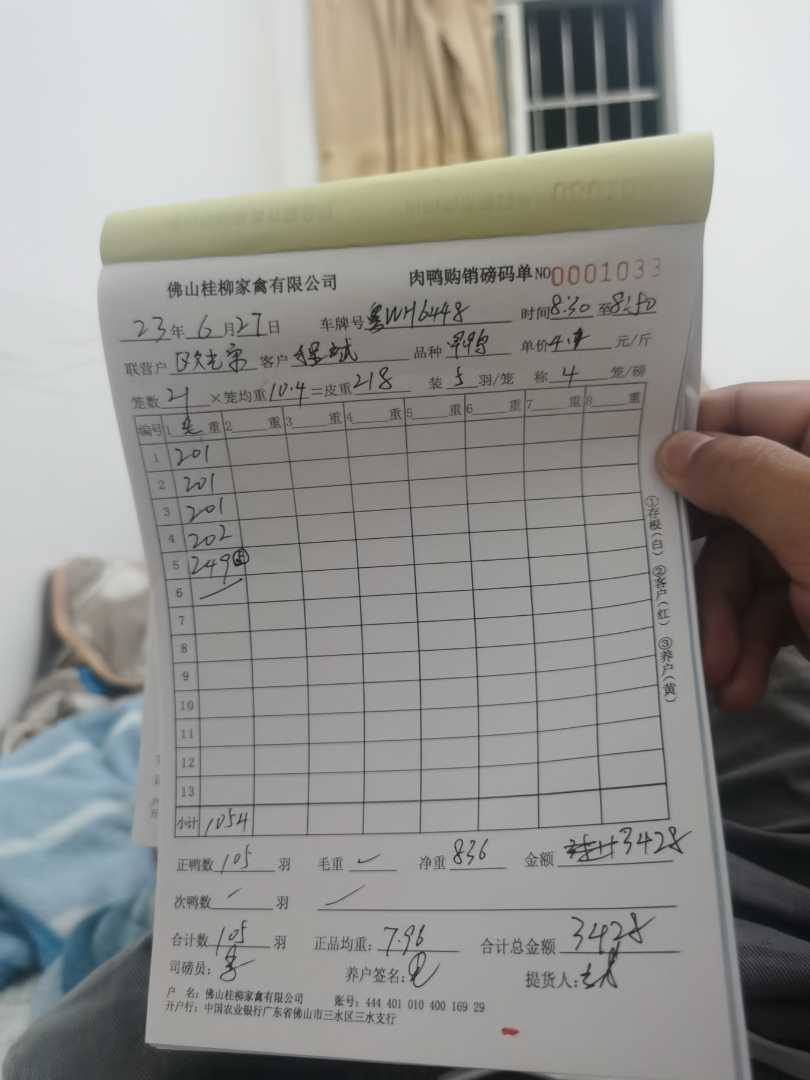 佛山桂柳家禽有限公司 肉鸭购销磅码单 NO 0001033
23年6月27日 车牌号 粤WH6448 时间 8:30 至 8:50
联营户 客户 品种 单价 4.1 元/斤
笼数 21 ×笼均重 10.4 =皮重 218 装 5 羽/笼 称 4 笼/磅
编号 1 重 2 重 3 重 4 重 5 重 6 重 7 重 8 重
1 201
2 201
3 201
4 202
5 249 ⑤
6
7
8
9
10
11
12
13
小计 1054
正鸭数 105 羽 毛重 净重 836 金额 3428
次鸭数 羽
合计数 105 羽 正品均重: 7.96 合计总金额 3428
司磅员: 养户签名: 提货人:
户 名: 佛山桂柳家禽有限公司 账号: 444 401 010 400 169 29
开户行: 中国农业银行广东省佛山市三水区三水支行
①存根(白) ②客户(红) ③养户(黄)